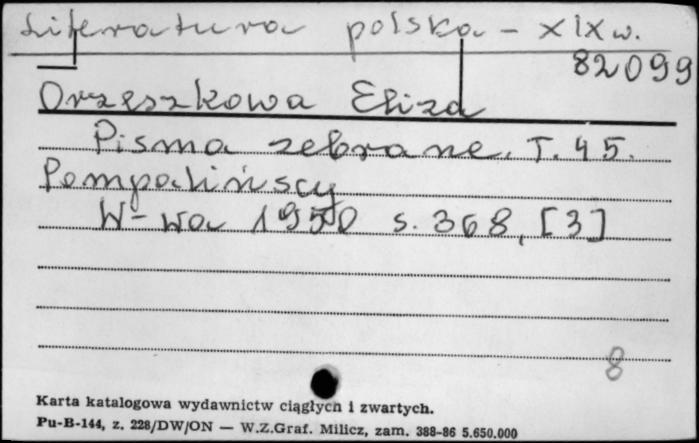 Literatura polska – XIX w.
82099
Orzeszkowa Eliza
Pisma zebrane. T. 45.
Pompalińscy
W-wa 1950 s. 368, [3]
8
Karta katalogowa wydawnictw ciągłych i zwartych.
Pu-B-144, z. 228/DW/ON — W.Z.Graf. Milicz, zam. 388-86 5.650.000